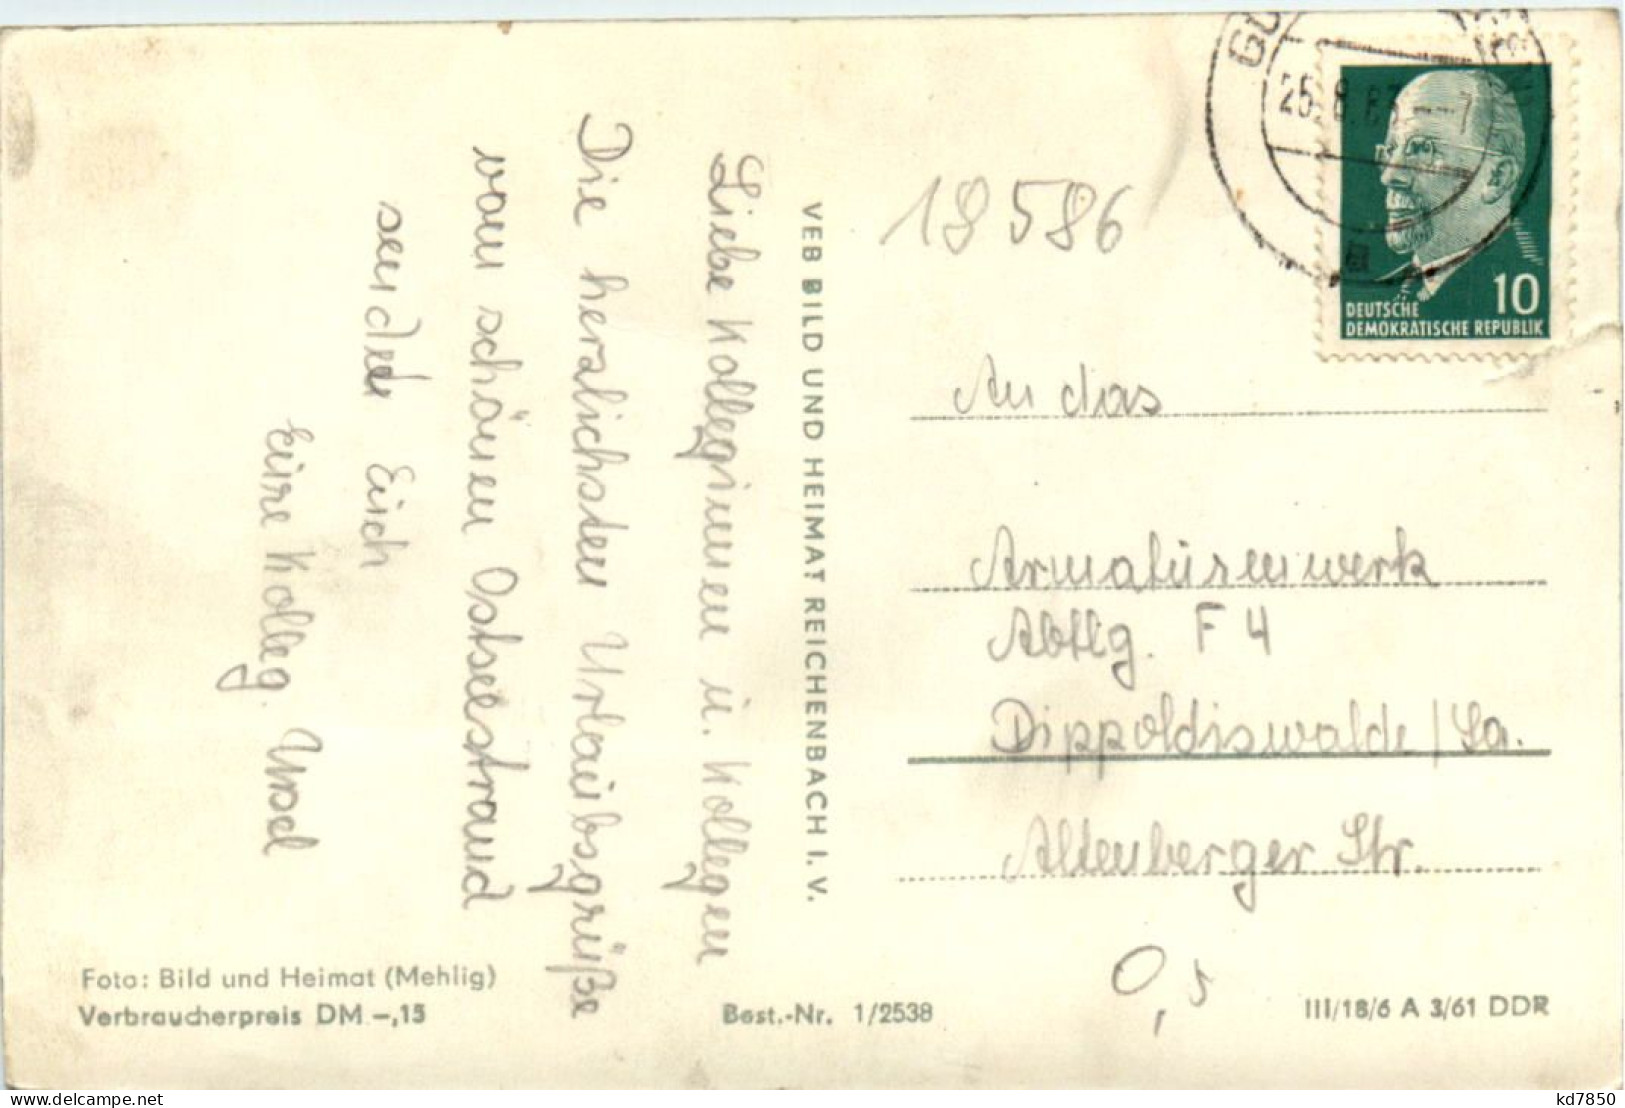 Liebe Kolleginnen u. Kollegen
Die herzlichsten Urlaubsgrüße
vom schönen Ostseestrand
sendet Euch
Eure Kolleg.
VEB BILD UND HEIMAT REICHENBACH I. V.
18586
25.8.6
10
DEUTSCHE
DEMOKRATISCHE REPUBLIK
An das
Armaturenwerk
Abtlg. F 4
Dippoldiswalde / Sa.
Altenberger Str.
0,5
Foto: Bild und Heimat (Mehlig)
Verbraucherpreis DM -,15
Best.-Nr. 1/2538
III/18/6 A 3/61 DDR
kd7850